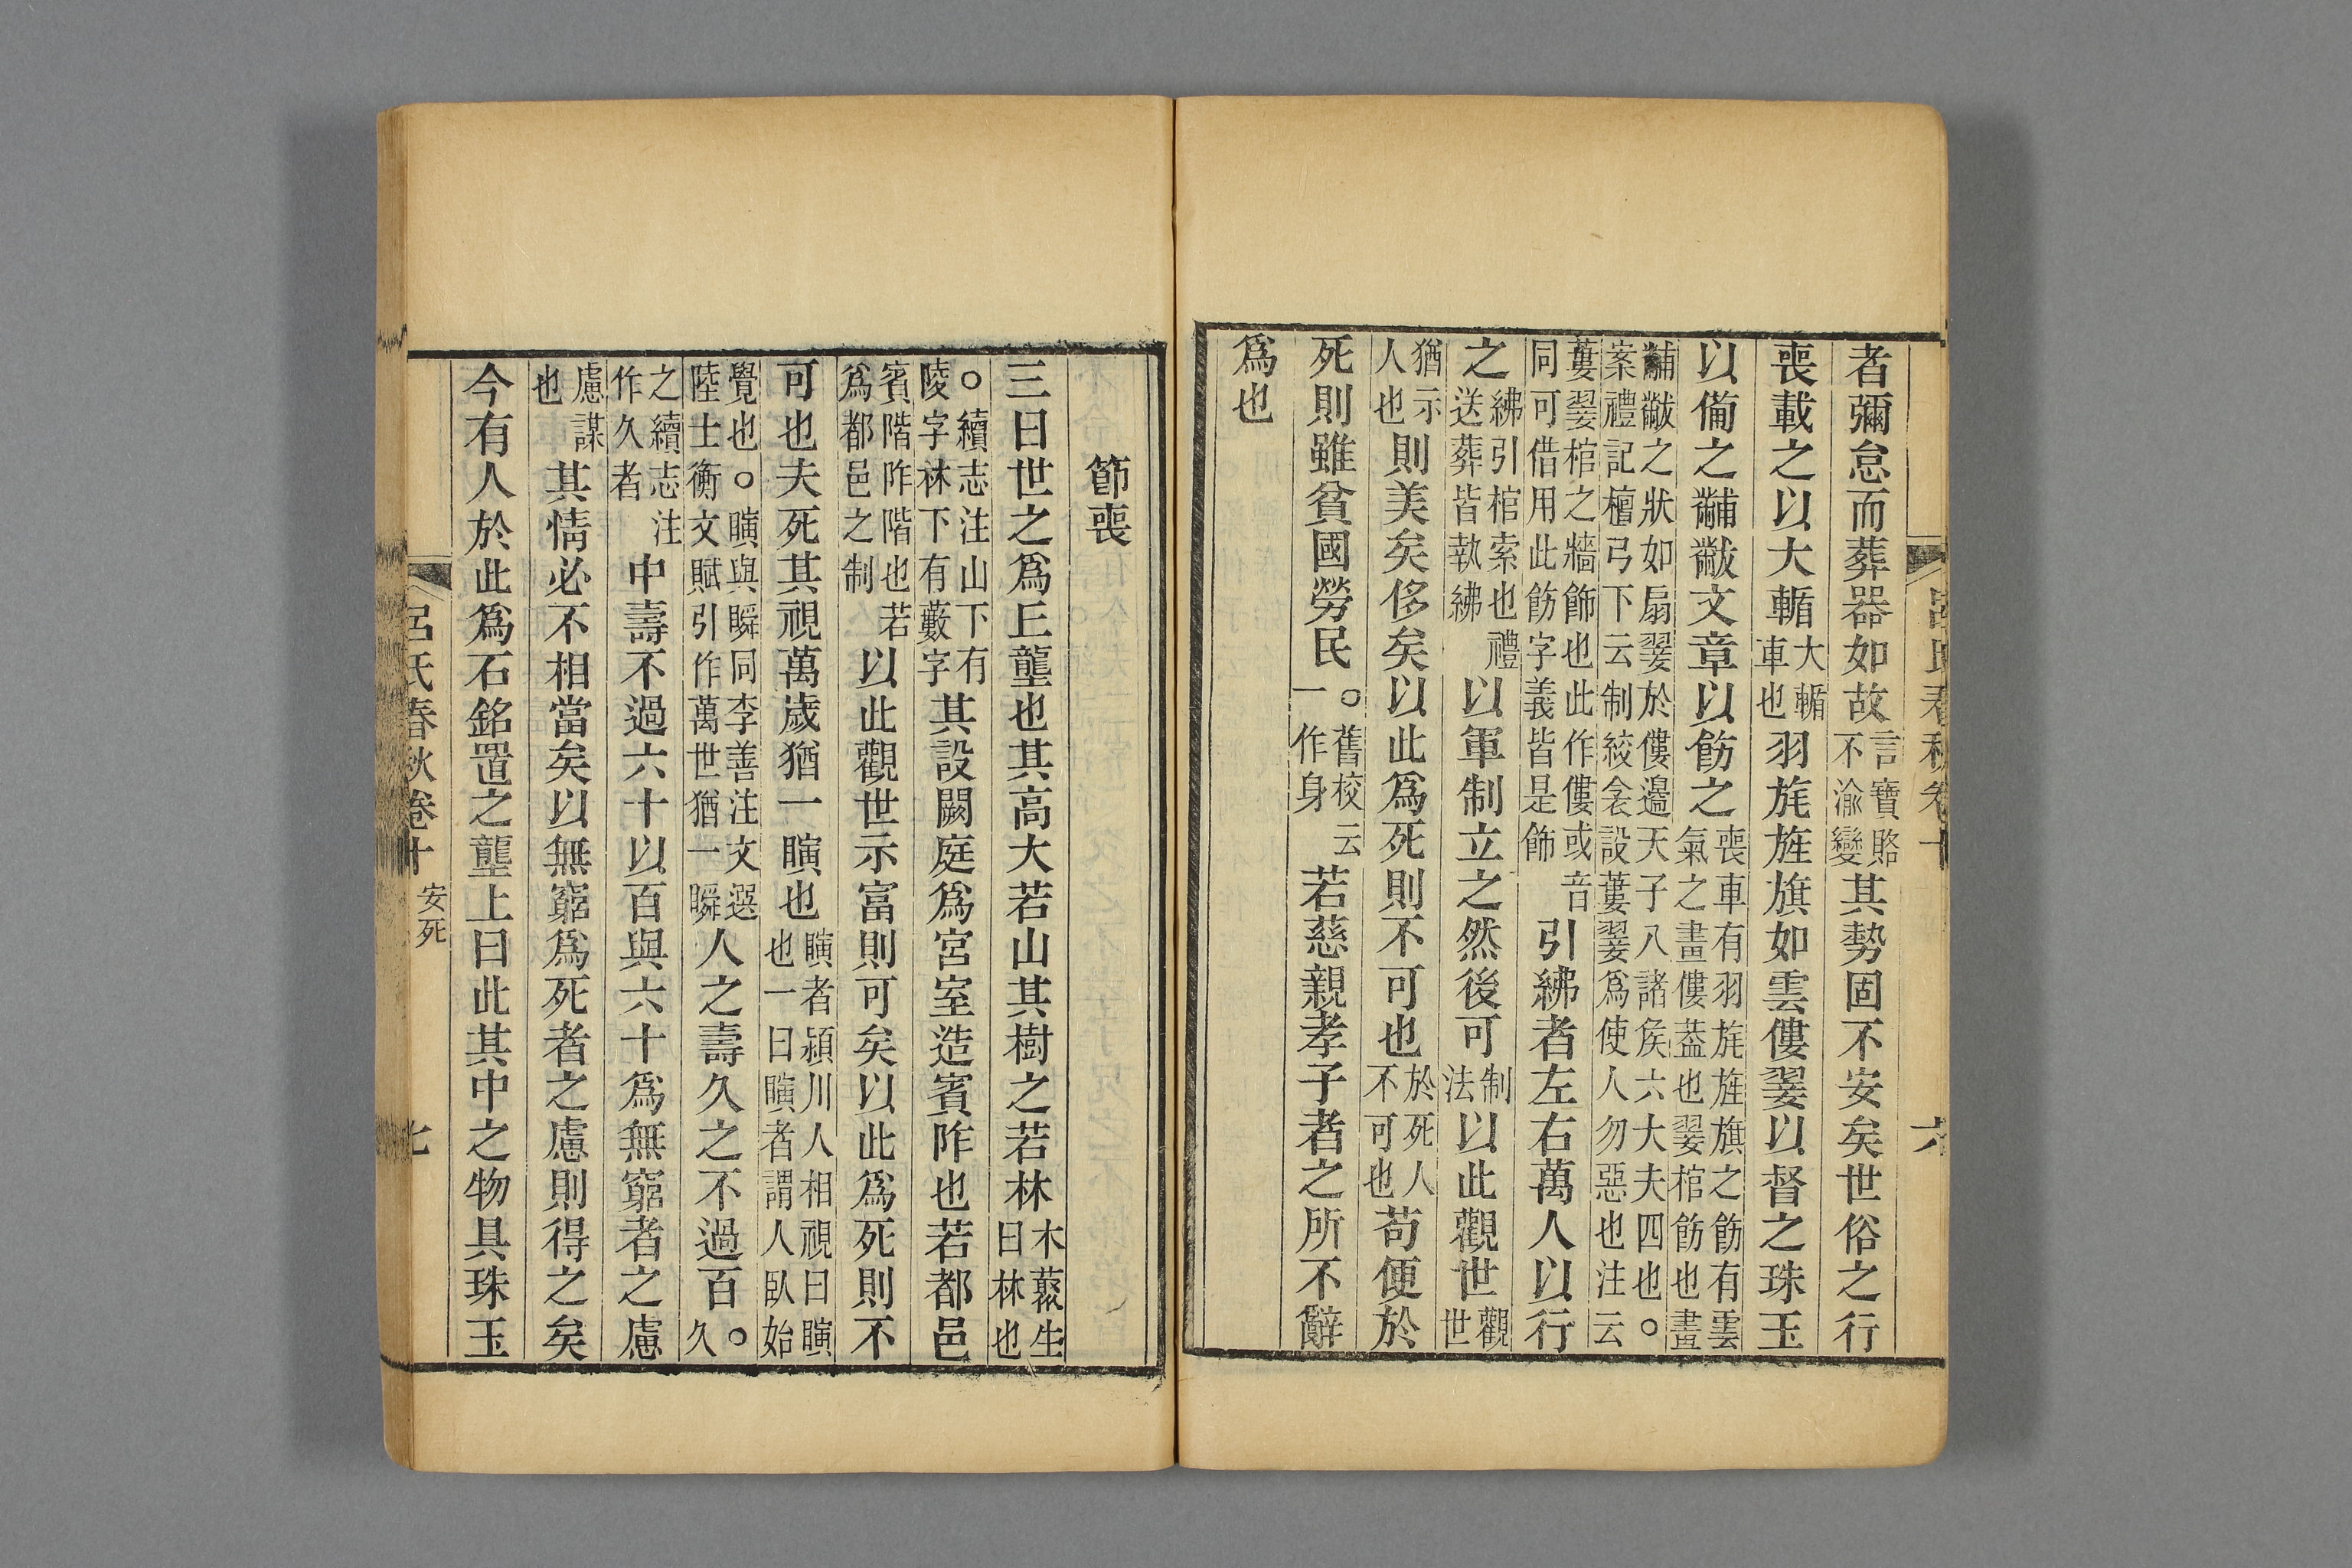 呂氏春秋卷十 六
者彌怠而葬器如故言寶賂不渝變其勢固不安矣世俗之行
喪載之以大輴大輴車也羽旄旌旗如雲僂翣以督之珠玉
以備之黼黻文章以飭之喪車有羽旄旌旗之飭有雲氣之畫僂蓋也翣棺飭也畫
黼黻之狀如扇翣於僂邉天子八諸侯六大夫四也○案禮記檀弓下云制絞衾設蔞翣爲使人勿惡也注云
蔞翣棺之牆飾也此作僂或音同可借用此飭字義皆是飾引紼者左右萬人以行
之紼引棺索也禮送葬皆執紼以軍制立之然後可制法以此觀世觀世
猶示人也則美矣侈矣以此爲死則不可也於死人不可也苟便於
死則雖貧國勞民○舊校云一作身若慈親孝子者之所不辭
爲也
節喪
三曰世之爲丘壟也其高大若山其樹之若林木藂生曰林也
○續志注山下有陵字林下有藪字其設闕庭爲宮室造賓阼也若都邑
賓階阼階也若爲都邑之制以此觀世示富則可矣以此爲死則不
可也夫死其視萬歲猶一瞚也瞚者潁川人相視曰瞚也一曰瞚者謂人臥始
覺也○瞚與瞬同李善注文選陸士衡文賦引作萬世猶一瞬人之壽久之不過百○久
之續志注作久者中壽不過六十以百與六十爲無窮者之慮
慮謀也其情必不相當矣以無窮爲死者之慮則得之矣
今有人於此爲石銘置之壟上曰此其中之物具珠玉
呂氏春秋卷十 安死 七